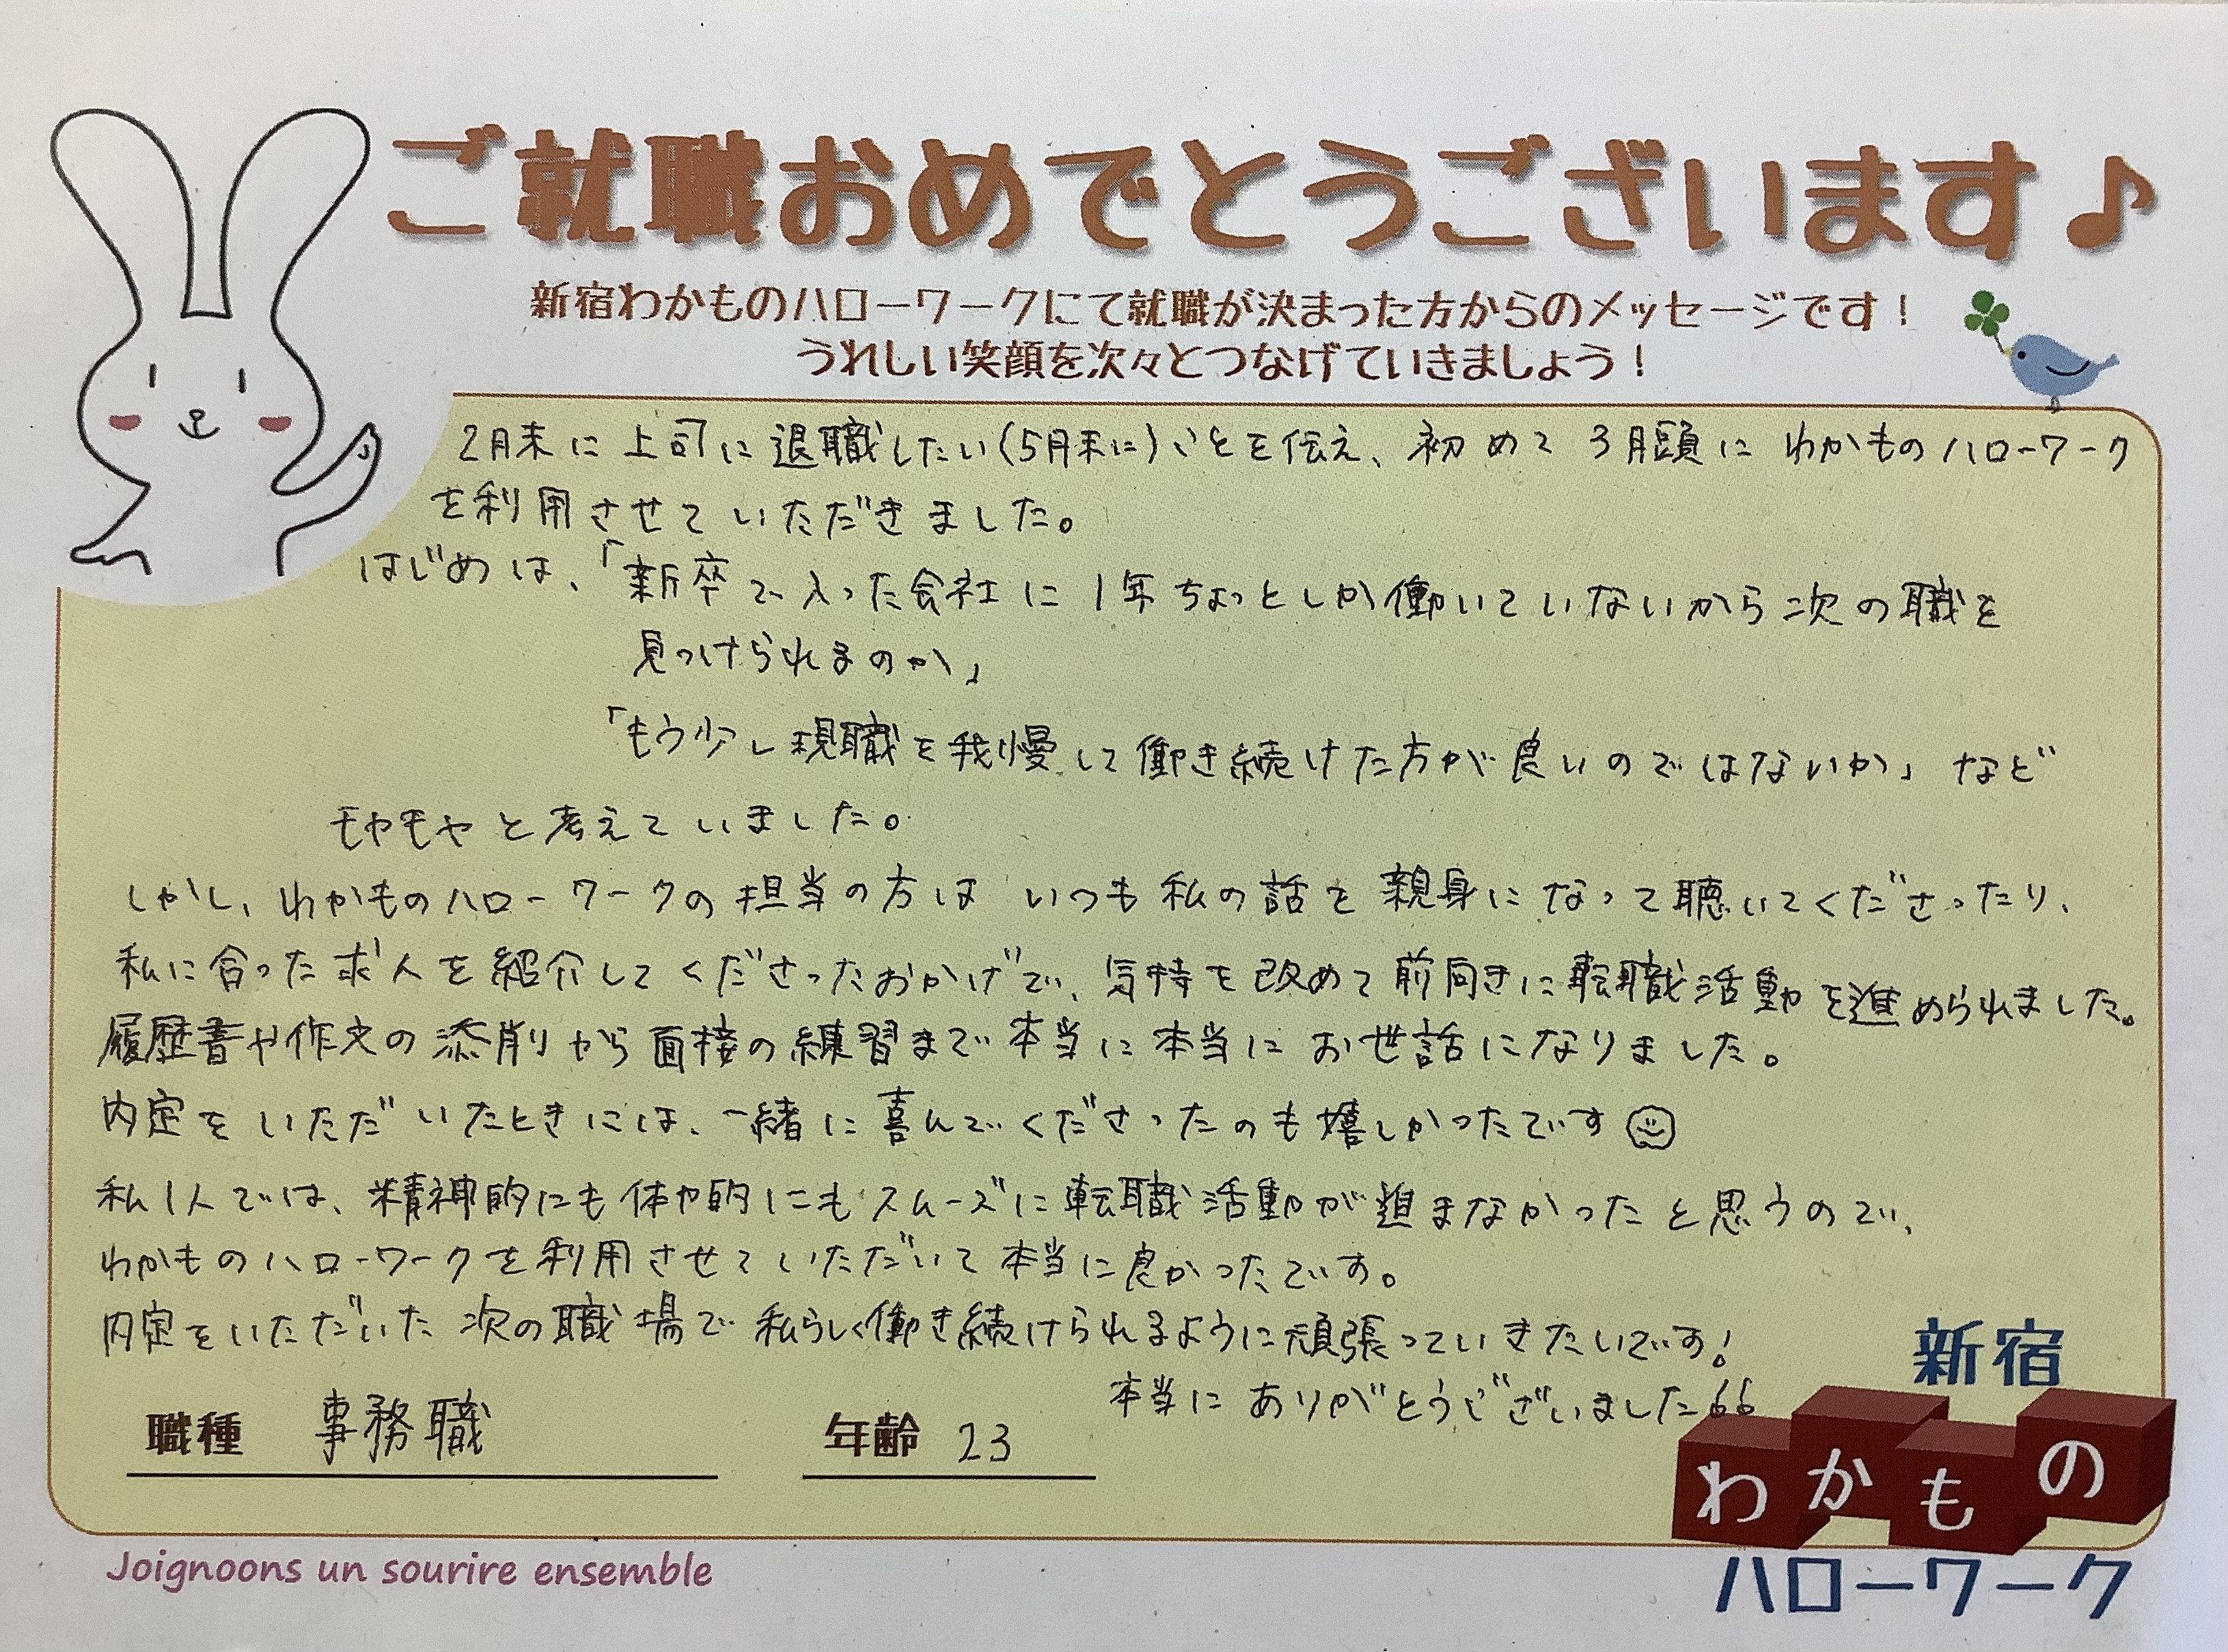 ご就職おめでとうございます♪
新宿わかものハローワークにて就職が決まった方からのメッセージです！
うれしい笑顔を次々とつなげていきましょう！
2月末に上司に退職したい(5月末に)ことを伝え、初めて3月頭にわかものハローワーク
を利用させていただきました。
はじめは、「新卒で入った会社に1年ちょっとしか働いていないから次の職を
見つけられるのか」
「もう少し現職を我慢して働き続けた方が良いのではないか」など
モヤモヤと考えていました。
しかし、わかものハローワークの担当の方はいつも私の話を親身になって聴いてくださったり、
私に合った求人を紹介してくださったおかげで、気持を改めて前向きに転職活動を進められました。
履歴書や作文の添削から面接の練習まで本当に本当にお世話になりました。
内定をいただいたときには、一緒に喜んでくださったのも嬉しかったです☺
私1人では、精神的にも体力的にもスムーズに転職活動が進まなかったと思うので、
わかものハローワークを利用させていただいて本当に良かったです。
内定をいただいた次の職場で私らしく働き続けられるように頑張っていきたいです!
本当にありがとうございました
職種 事務職
年齢 23
新宿
わかもの
ハローワーク
Joignoons un sourire ensemble